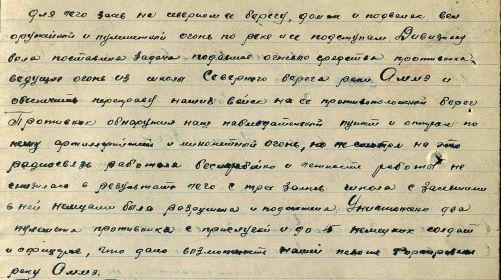 для чего засев на северном ее берегу, домах и подвалах вел
оружейный и пулеметной огонь по реке и ее подступам Дивизиону
была поставлена задача подавить огневые средства противника
ведущие огонь из школы Северного берега реки Аллэ и
обеспечить переправу наших войск на ее противоположный берег
Противник обнаружил наш наблюдательный пункт и открыл по
нему артиллерийский и минометной огонь, но не смотря на это
радиосвязь работала бесперебойно и точность работы не
снизилась в результате чего с трех залпов школа с засевшими
в ней немцами была разрушена и подожжена. Уничтожено два
пулемета противника с прислугой и до немецких солдат
и офицеров, что дало возможность нашей пехоте форсировать
реку Аллэ.